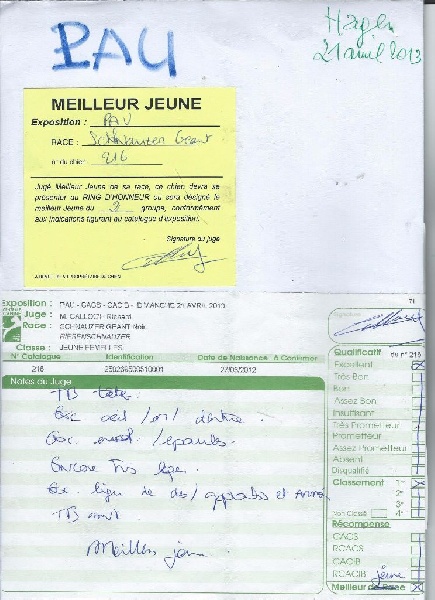 PAU
Hagen
21 avril 2013
MEILLEUR JEUNE
Exposition : PAU
RACE : Schnauzer Geant
n° du chien 216
Jugé Meilleur Jeune de sa race, ce chien devra se
présenter au RING D'HONNEUR où sera désigné le
meilleur Jeune du 2 groupe, conformément
aux indications figurant au catalogue d'exposition.
Signature du juge
Exposition : PAU - CACS - CACIB - DIMANCHE 21 AVRIL 2013
Juge : M. CALLOCH Richard
Race : SCHNAUZER GEANT Noir
RIESENSCHNAUZER
Classe : JEUNE FEMELLES
N° Catalogue Identification Date de Naissance A Confirmer
216 250269500510001
Notes du Juge
TB tête.
Exc oeil / / denture.
Exc / épaules.
Encore très
Exc ligne de dos / et
TB
Meilleur jeune
Signature
Qualificatif du n° 216
Excellent
Très Bon
Bon
Assez Bon
Insuffisant
Très Prometteur
Prometteur
Assez Prometteur
Absent
Disqualifié
Classement 1er
2e
3e
Non Classé 4e
Récompense
CACS
RCACS
CACIB
RCACIB jeune
Meilleur de Race